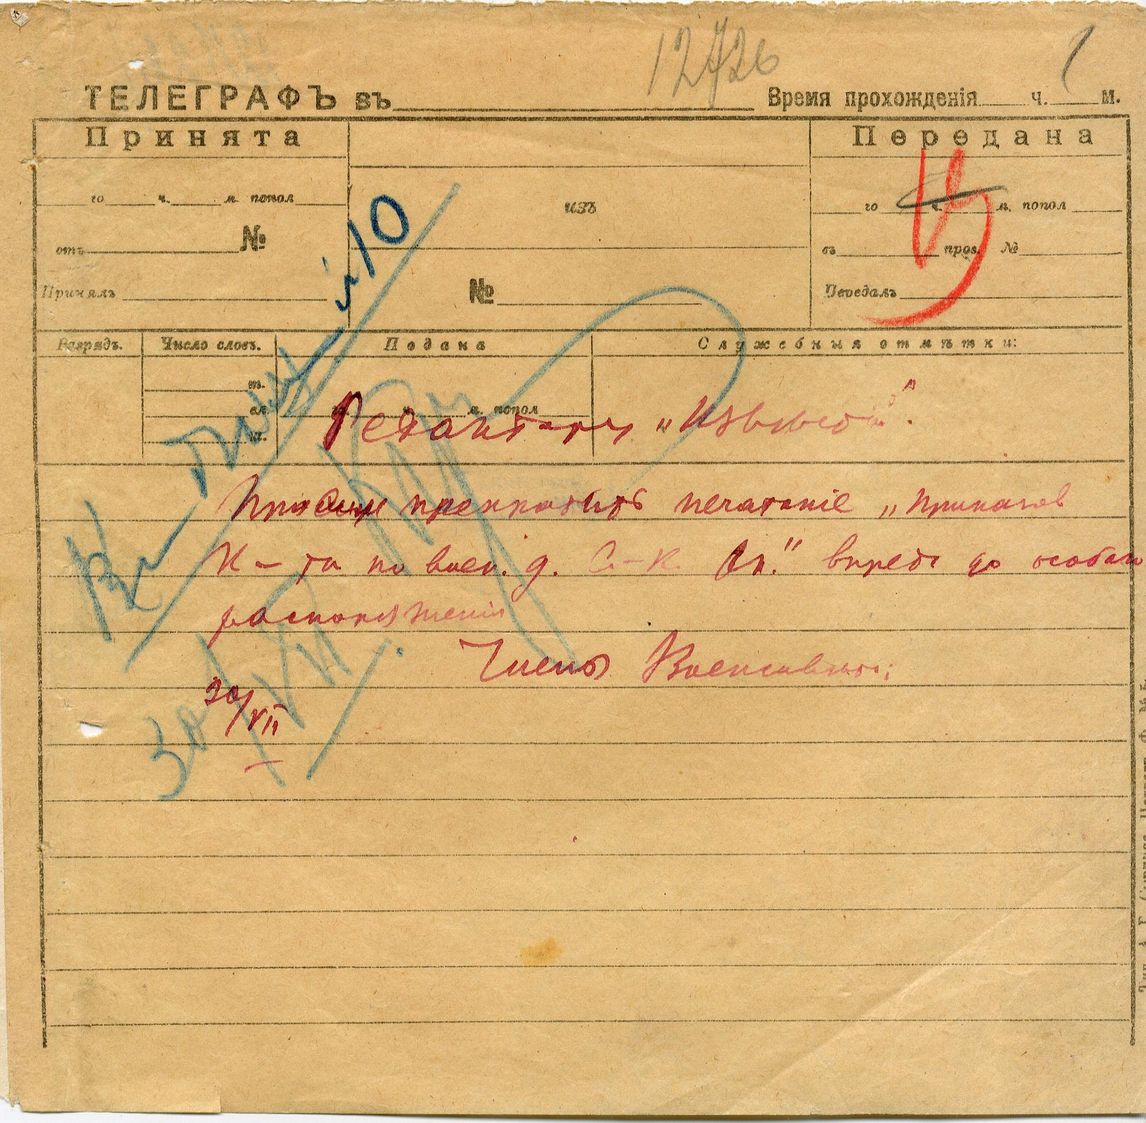 12726
ТЕЛЕГРАФЪ въ Время прохожденія ч. м.
Принята
Передана
го ч. м. попол
изъ
го ч. м. попол
отъ №
въ пров. №
Принялъ
№
Передалъ
Разрядъ. Число словъ. Подана Служебныя отмѣтки:
т.
ч. м. попол
Редактору „Извѣстій“.
Просим прекратить печатаніе „Приказов
К-та по воен. д. С-К. Ок.“ впредь до особаго
распоряженія
Члены
30/VII
30/VII